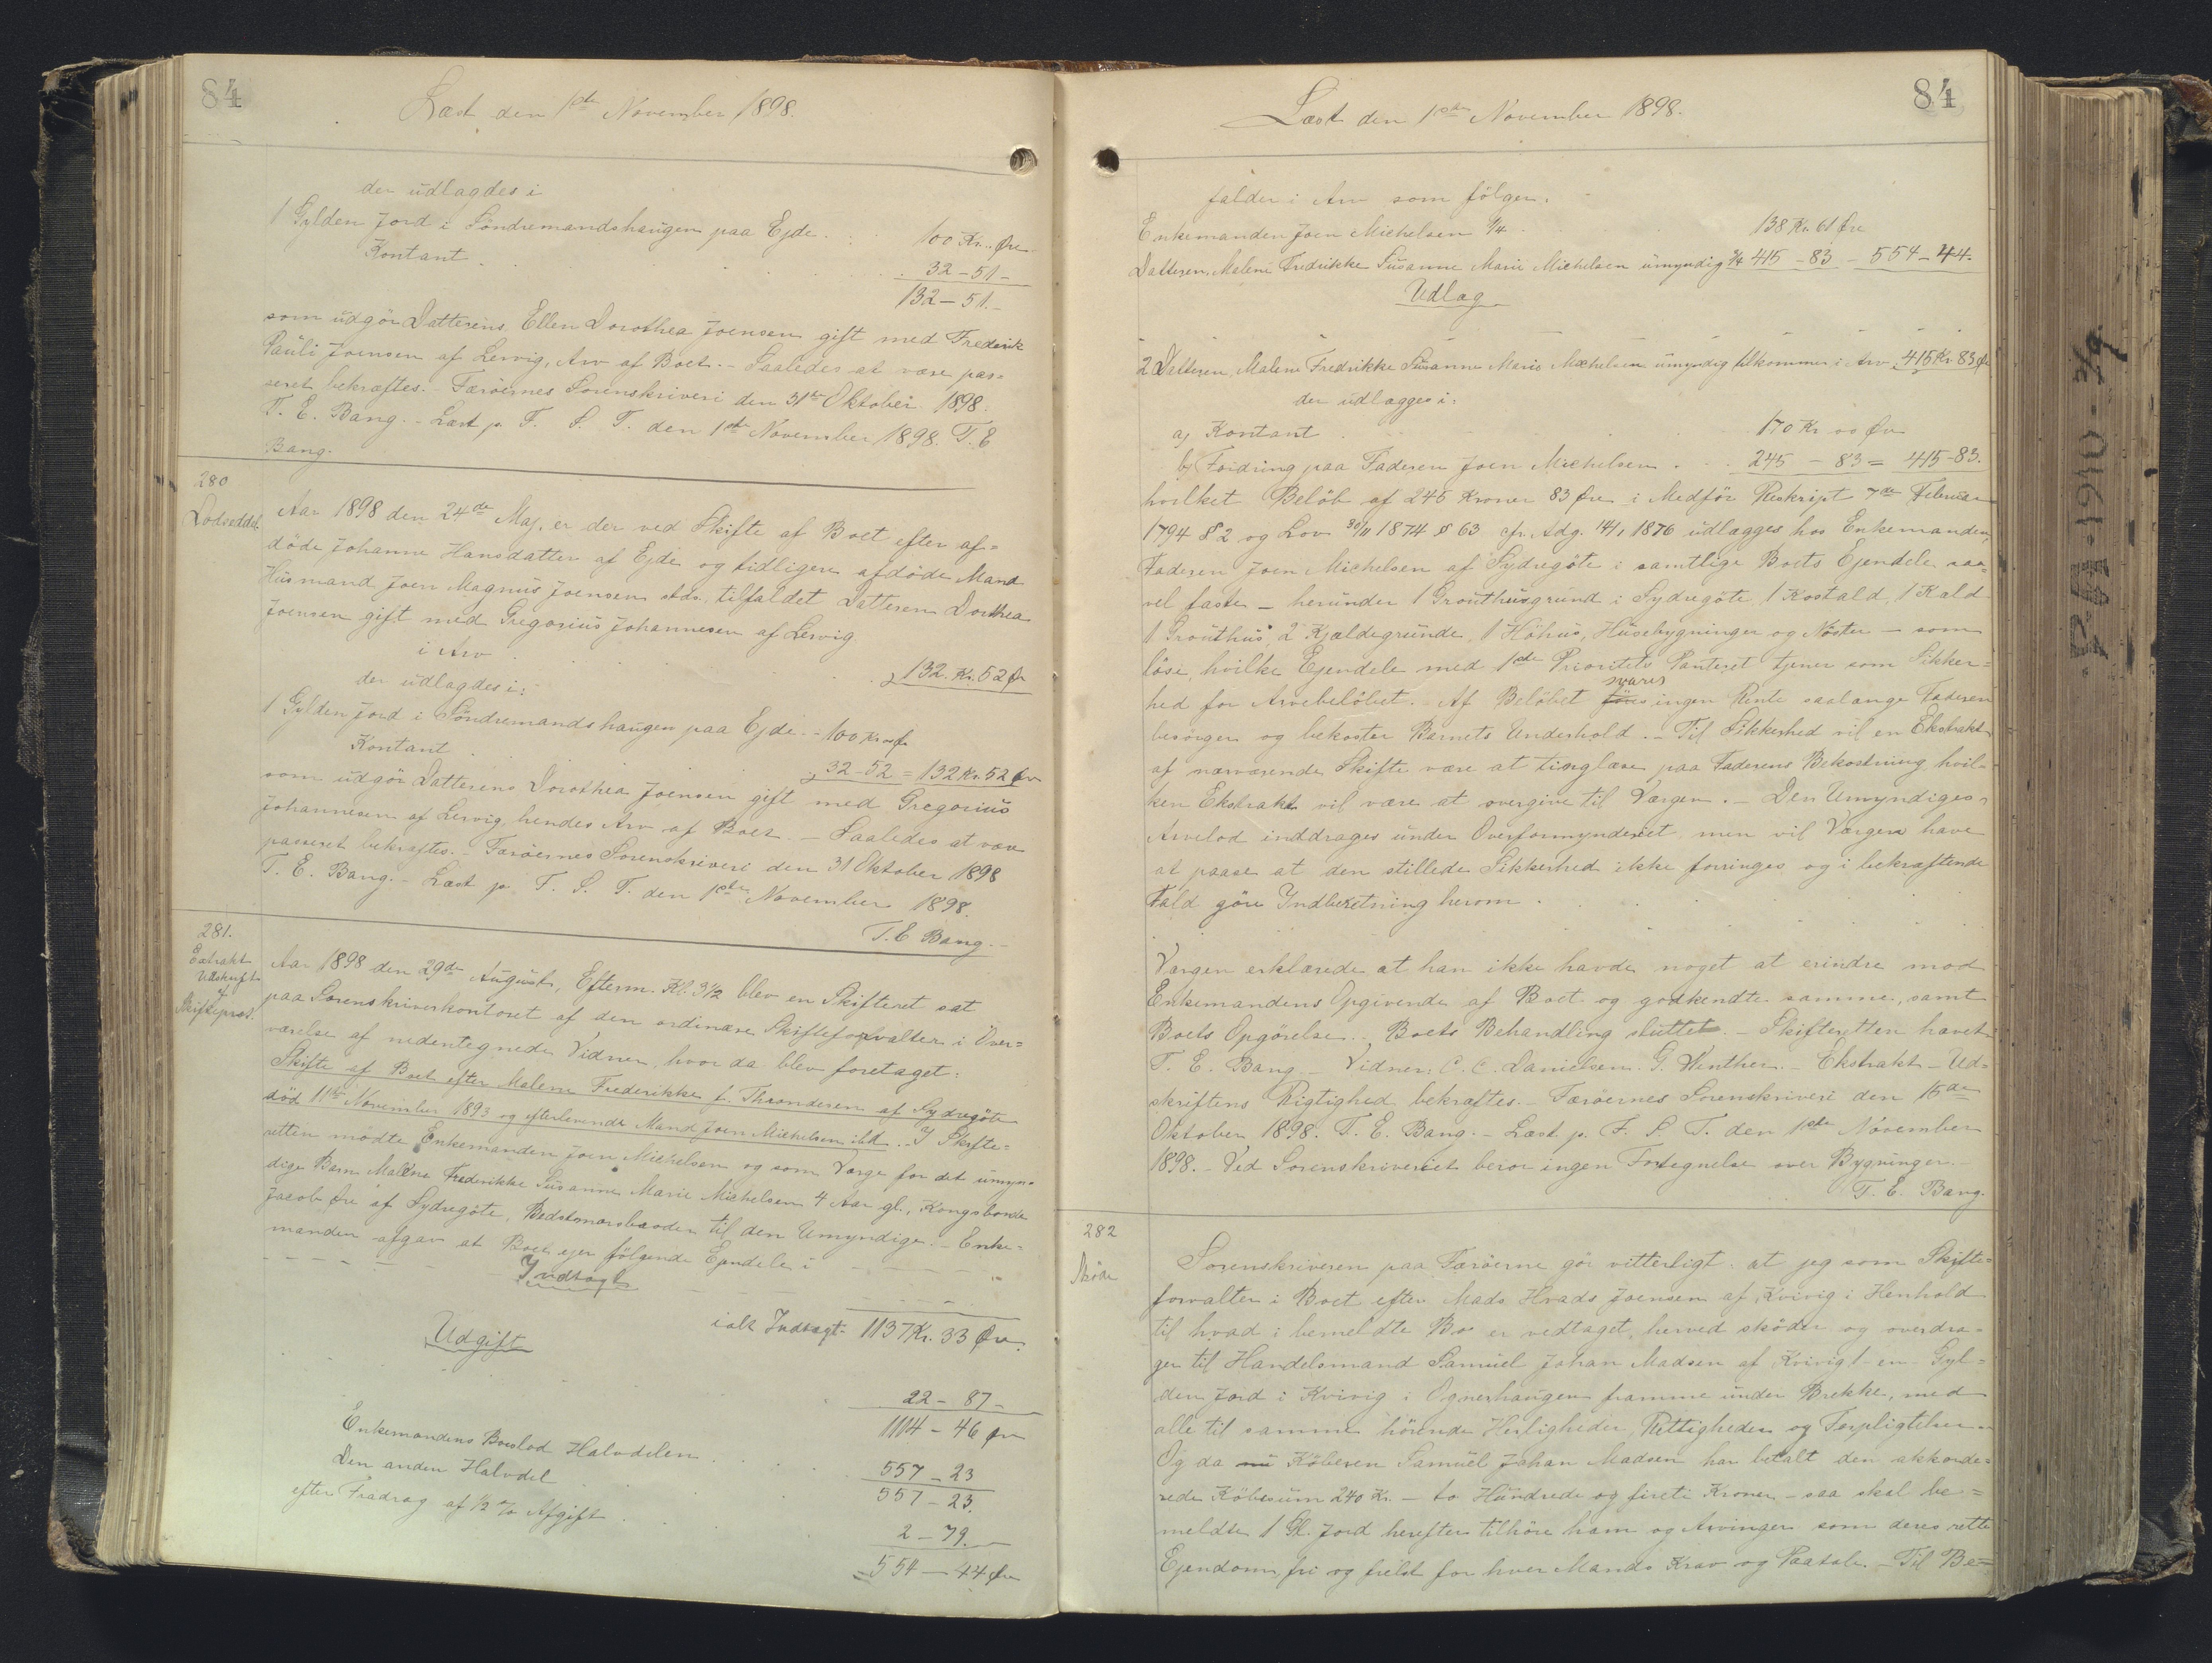 84
Læst den 1ste November 1898.
der udlagdes i
1 Gylden Jord i Söndremandshaugen paa Ejde. 100 Kr. Øre
Kontant . 32-51-
132-51.-
som udgör Datterens, Ellen Dorothea Joensen gift med Frederik
Pauli Joensen af Lervig, Arv af Boet. - Saaledes at være pas=
seret bekræftes. - Færöernes Sorenskriveri den 31te Oktober 1898.
T. E. Bang. - Læst p. F. S. T. den 1ste November 1898. T. E
Bang.
280
Lodseddel.
Aar 1898 den 24de Maj, er der ved Skifte af Boet efter af=
döde Johanne Hansdatter af Ejde og tidligere afdöde Mand
Husmand Joen Magnus Joensen stds. tilfaldet Datteren Dorthea
Joensen gift med Gregorius Johannesen af Lervig
i Arv . 132. Kr. 52 Ør
der udlagdes i:
1 Gylden Jord i Söndremandshaugen paa Ejde. - 100 Kr 00 Ør
Kontant . 32-52 = 132 Kr. 52 Ør
som udgör Datterens Dorothea Joensen gift med Gregorius
Johannesen af Lervig, hendes Arv af Boet. - Saaledes at være
passeret bekræftes. - Færöernes Sorenskriveri den 31 Oktober 1898
T. E. Bang. - Læst p. F. S. T. den 1ste November 1898.
T. E Bang. -
281.
Extrakt
Udskrift
af
Skifteprot.
Aar 1898 den 29de August, Efterm. Kl. 3½ blev en Skifteret sat
paa Sorenskriverkontoret af den ordinære Skifteforvalter i Over=
værelse af nedentegnede Vidner, hvor da blev foretaget:
Skifte af Boet efter Malene Frederikke f. Thronderen af Sydregöte
död 11te November 1893 og efterlevende Mand Joen Michelsen ibd. . I Skifte=
retten mödte Enkemanden Joen Michelsen og som Værge for det umyn=
dige Barn Malene Frederikke Susanne Marie Michelsen 4 Aar gl., Kongsbonde
Jacob Øre af Sydregöte, Bedstemorsbroder til den Umyndige. - Enke=
manden afgav at Boet ejer følgende Ejendele i
Indtægt
ialt Indtægt - 1137 Kr. 33 Øre.
Udgift
22 - 87 -
1114 - 46 Ør
Enkemandens Boeslod Halvdelen . 557 - 23
Den anden Halvdel . 557 - 23.
efter Fradrag af ½ % Afgift . 2 - 79.
554 - 44 Ør
84
Læst den 1ste November 1898.
falder i Arv som fölger.
Enkemanden Joen Michelsen ¼ . 138 Kr. 61 Øre
Datteren, Malene Fredrikke Susanne Marie Michelsen umyndig ¾ 415 - 83 - 554 - 44.
Udlæg
2 Datteren, Malene Fredrikke Susanne Marie Michelsen umyndig tilkommer i Arv 415 Kr. 83 Ør
der udlægges i:
a, Kontant . 170 Kr 00 Øre
b, Fordring paa Faderen Joen Michelsen . 245 - 83 = 415-83.
hvilket Belöb af 245 Kroner 83 Øre i Medför Reskript 7de Februar
1794 § 2 og Lov 30/11 1874 § 63 cfr. Adg. 14/1 1876 udlægges hos Enkemanden,
Faderen Joen Michelsen af Sydregöte i samtlige Boets Ejendele saa=
vel faste - herunder 1 Grouthusgrund i Sydregöte, 1 Kostald, 1 Kald
1 Grouthus, 2 Kjældegrunde, 1 Höhus, Husebygninger og Nöster - som
löse, hvilke Ejendele med 1ste Prioritets Panteret tjener som Sikker=
hed for Arvebelöbet. - Af Belöbet svares ingen Rente saalænge Faderen
besörger og bekoster Barnets Underhold. - Til Sikkerhed vil en Ekstrakt
af nærværende Skifte være at tinglæse paa Faderens Bekostning, hvil=
ken Ekstrakt vil være at overgive til Værgen. - Den Umyndiges
Arvelod inddrages under Overformynderiet, men vil Værgen have
at paase at den stillede Sikkerhed ikke forringes og i bekræftende
Fald göre Indberetning herom .
Værgen erklærede at han ikke havde noget at erindre mod
Enkemandens Opgivende af Boet og godkendte samme, samt
Boets Opgörelse. . Boets Behandling sluttet. - Skifteretten hævet
T. E. Bang. - Vidner: C. C. Danielsen. G. Winther. - Ekstrakt - Ud=
skriftens Rigtighed bekræftes. - Færöernes Sorenskriveri den 15de
Oktober 1898. T. E. Bang. - Læst p. F. S T. den 1ste November
1898. - Ved Sorenskriveriet beror ingen Fortegnelse over Bygninger. -
T. E. Bang.
282
Sköde
Sorenskriveren paa Færöerne gör vitterligt: at jeg som Skifte=
forvalter i Boet efter Mads Hvads Joensen af Kvivig i Henhold
til hvad i bemeldte Bo er vedtaget, herved sköder og overdra=
ger til Handelsmand Samuel Johan Madsen af Kvivig 1 en Gyl=
den Jord i Kvivig i Ognerhaugen framme under Brekke, med
alle til samme hörende Herligheder, Rettigheder og Forpligtelser.
Og da nu Köberen Samuel Johan Madsen har betalt den akkorde=
rede Köbesum 240 Kr. - to Hundrede og fireti Kroner - saa skal be=
meldte 1 Gl. Jord herefter tilhöre ham og Arvinger som deres rette
Ejendom, fri og frelst for hver Mands Krav og Paatale. - Til Be=
1910 - 3/9.